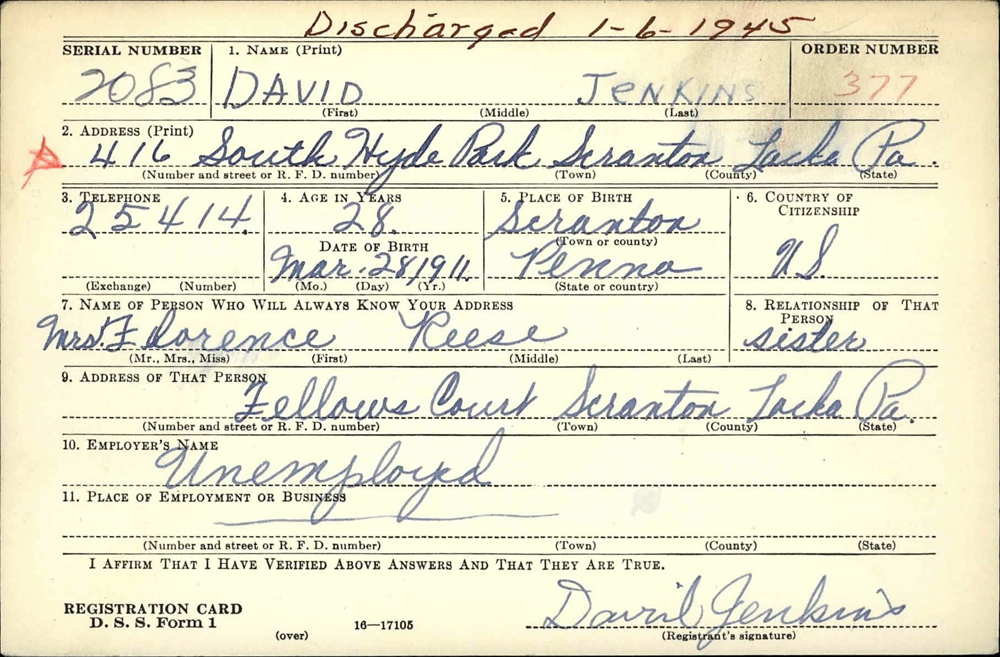 Discharged 1-6-1945
SERIAL NUMBER 1. NAME (Print) ORDER NUMBER
2083 DAVID JENKINS 377
(First) (Middle) (Last)
2. ADDRESS (Print)
416 South Hyde Park Scranton Lacka Pa.
(Number and street or R. F. D. number) (Town) (County) (State)
3. TELEPHONE 4. AGE IN YEARS 5. PLACE OF BIRTH 6. COUNTRY OF CITIZENSHIP
25414. 28. Scranton
DATE OF BIRTH (Town or county)
Mar. 28 1911. Penna US
(Exchange) (Number) (Mo.) (Day) (Yr.) (State or country)
7. NAME OF PERSON WHO WILL ALWAYS KNOW YOUR ADDRESS 8. RELATIONSHIP OF THAT PERSON
Mrs. Florence Reese sister
(Mr., Mrs., Miss) (First) (Middle) (Last)
9. ADDRESS OF THAT PERSON
Fellows Court Scranton Lacka Pa.
(Number and street or R. F. D. number) (Town) (County) (State)
10. EMPLOYER'S NAME
Unemployed
11. PLACE OF EMPLOYMENT OR BUSINESS
(Number and street or R. F. D. number) (Town) (County) (State)
I AFFIRM THAT I HAVE VERIFIED ABOVE ANSWERS AND THAT THEY ARE TRUE.
REGISTRATION CARD
D. S. S. Form 1 David Jenkins
(over) 16—17105 (Registrant's signature)